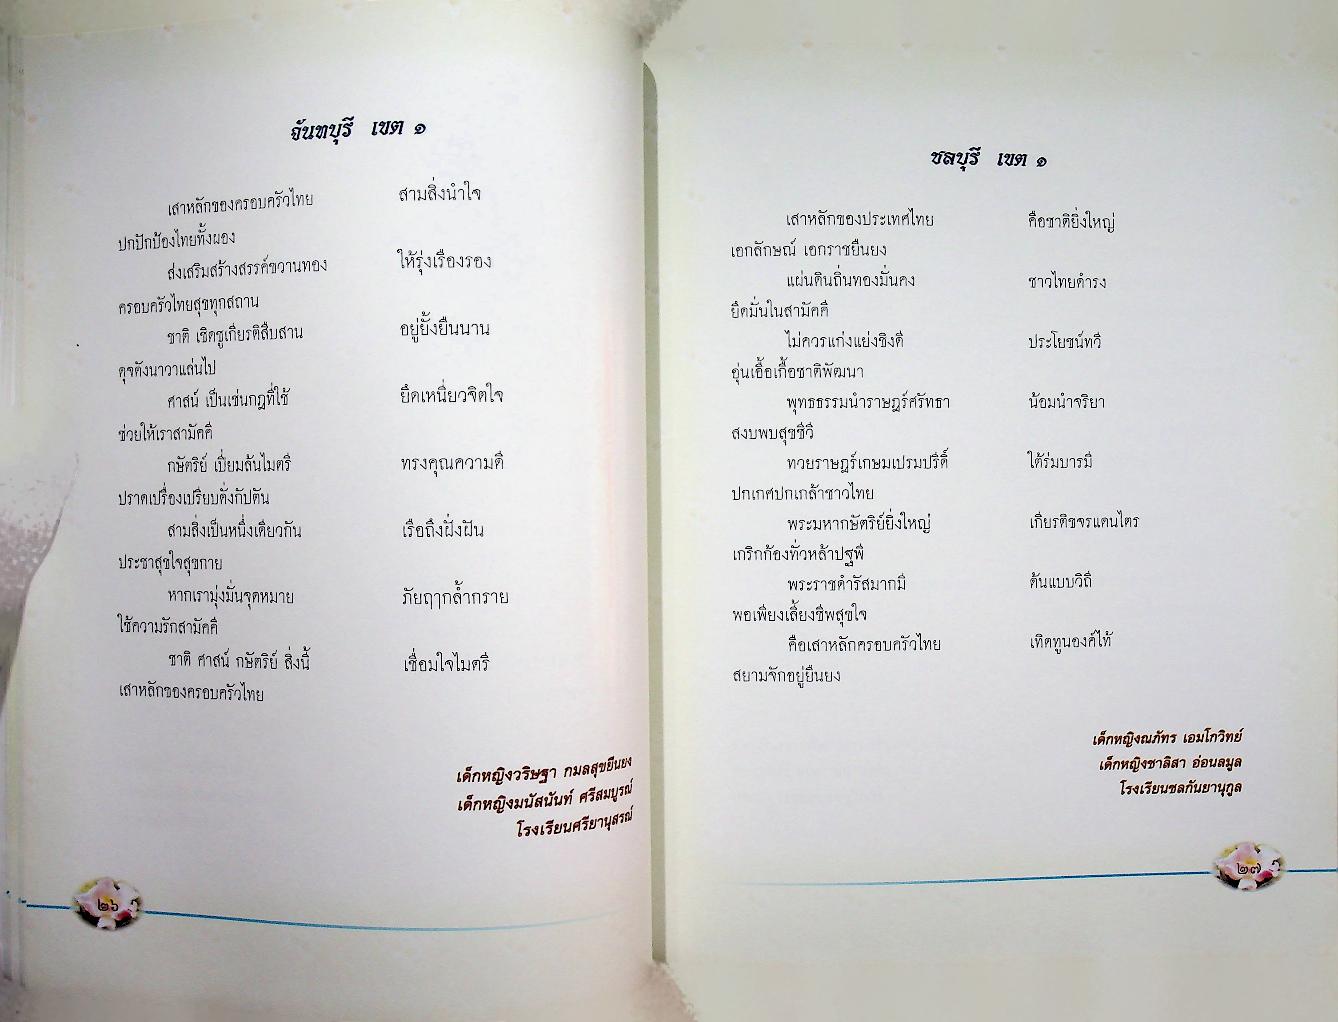 จันทบุรี เขต ๑
เสาหลักของครอบครัวไทย สามสิ่งนำใจ
ปกปักป้องไทยทั้งผอง
ส่งเสริมสร้างสรรค์ขวานทอง ให้รุ่งเรืองรอง
ครอบครัวไทยสุขทุกสถาน
ชาติ เชิดชูเกียรติสืบสาน อยู่ยั้งยืนนาน
ดุจดังนาวาแล่นไป
ศาสน์ เป็นเช่นกฎที่ใช้ ยึดเหนี่ยวจิตใจ
ช่วยให้เราสามัคคี
กษัตริย์ เปี่ยมล้นไมตรี ทรงคุณความดี
ปราดเปรื่องเปรียบดั่งกัปตัน
สามสิ่งเป็นหนึ่งเดียวกัน เรือถึงฝั่งฝัน
ประชาสุขใจสุขกาย
หากเรามุ่งมั่นจุดหมาย ภัยฤๅกล้ำกราย
ใช้ความรักสามัคคี
ชาติ ศาสน์ กษัตริย์ สิ่งนี้ เชื่อมใจไมตรี
เสาหลักของครอบครัวไทย
เด็กหญิงวริษฐา กมลสุขยืนยง
เด็กหญิงมนัสนันท์ ศรีสมบูรณ์
โรงเรียนศรียานุสรณ์
๒๖
ชลบุรี เขต ๑
เสาหลักของประเทศไทย คือชาติยิ่งใหญ่
เอกลักษณ์ เอกราชยืนยง
แผ่นดินถิ่นทองมั่นคง ชาวไทยดำรง
ยึดมั่นในสามัคคี
ไม่ควรแก่งแย่งชิงดี ประโยชน์ทวี
อุ่นเอื้อเกื้อชาติพัฒนา
พุทธธรรมนำราษฎร์ศรัทธา น้อมนำจริยา
สงบพบสุขชีวี
ทวยราษฎร์เกษมเปรมปรีดิ์ ใต้ร่มบารมี
ปกเกศปกเกล้าชาวไทย
พระมหากษัตริย์ยิ่งใหญ่ เกียรติขจรแดนไตร
เกริกก้องทั่วหล้าปฐพี
พระราชดำรัสมากมี ต้นแบบวิถี
พอเพียงเลี้ยงชีพสุขใจ
คือเสาหลักครอบครัวไทย เทิดทูนองค์ไท้
สยามจักอยู่ยืนยง
เด็กหญิงณภัทร เอมโกวิทย์
เด็กหญิงชาลิสา อ่อนลมูล
โรงเรียนชลกันยานุกูล
๒๗